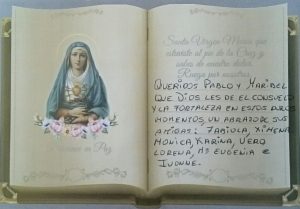 Santa Virgen María que
estuviste al pie de la Cruz y
sabes de nuestro dolor.
Ruega por nosotros.
QUERIDOS PABLO Y MARIBEL
QUE DIOS LES DE EL CONSUELO
Y LA FORTALEZA EN ESTOS DUROS
MOMENTOS, UN ABRAZO DE SUS
AMIGAS: FABIOLA, XIMENA
MONICA, KARINA, VERO
LORENA, Mª EUGENIA E
IVONNE.
Descanse en Paz